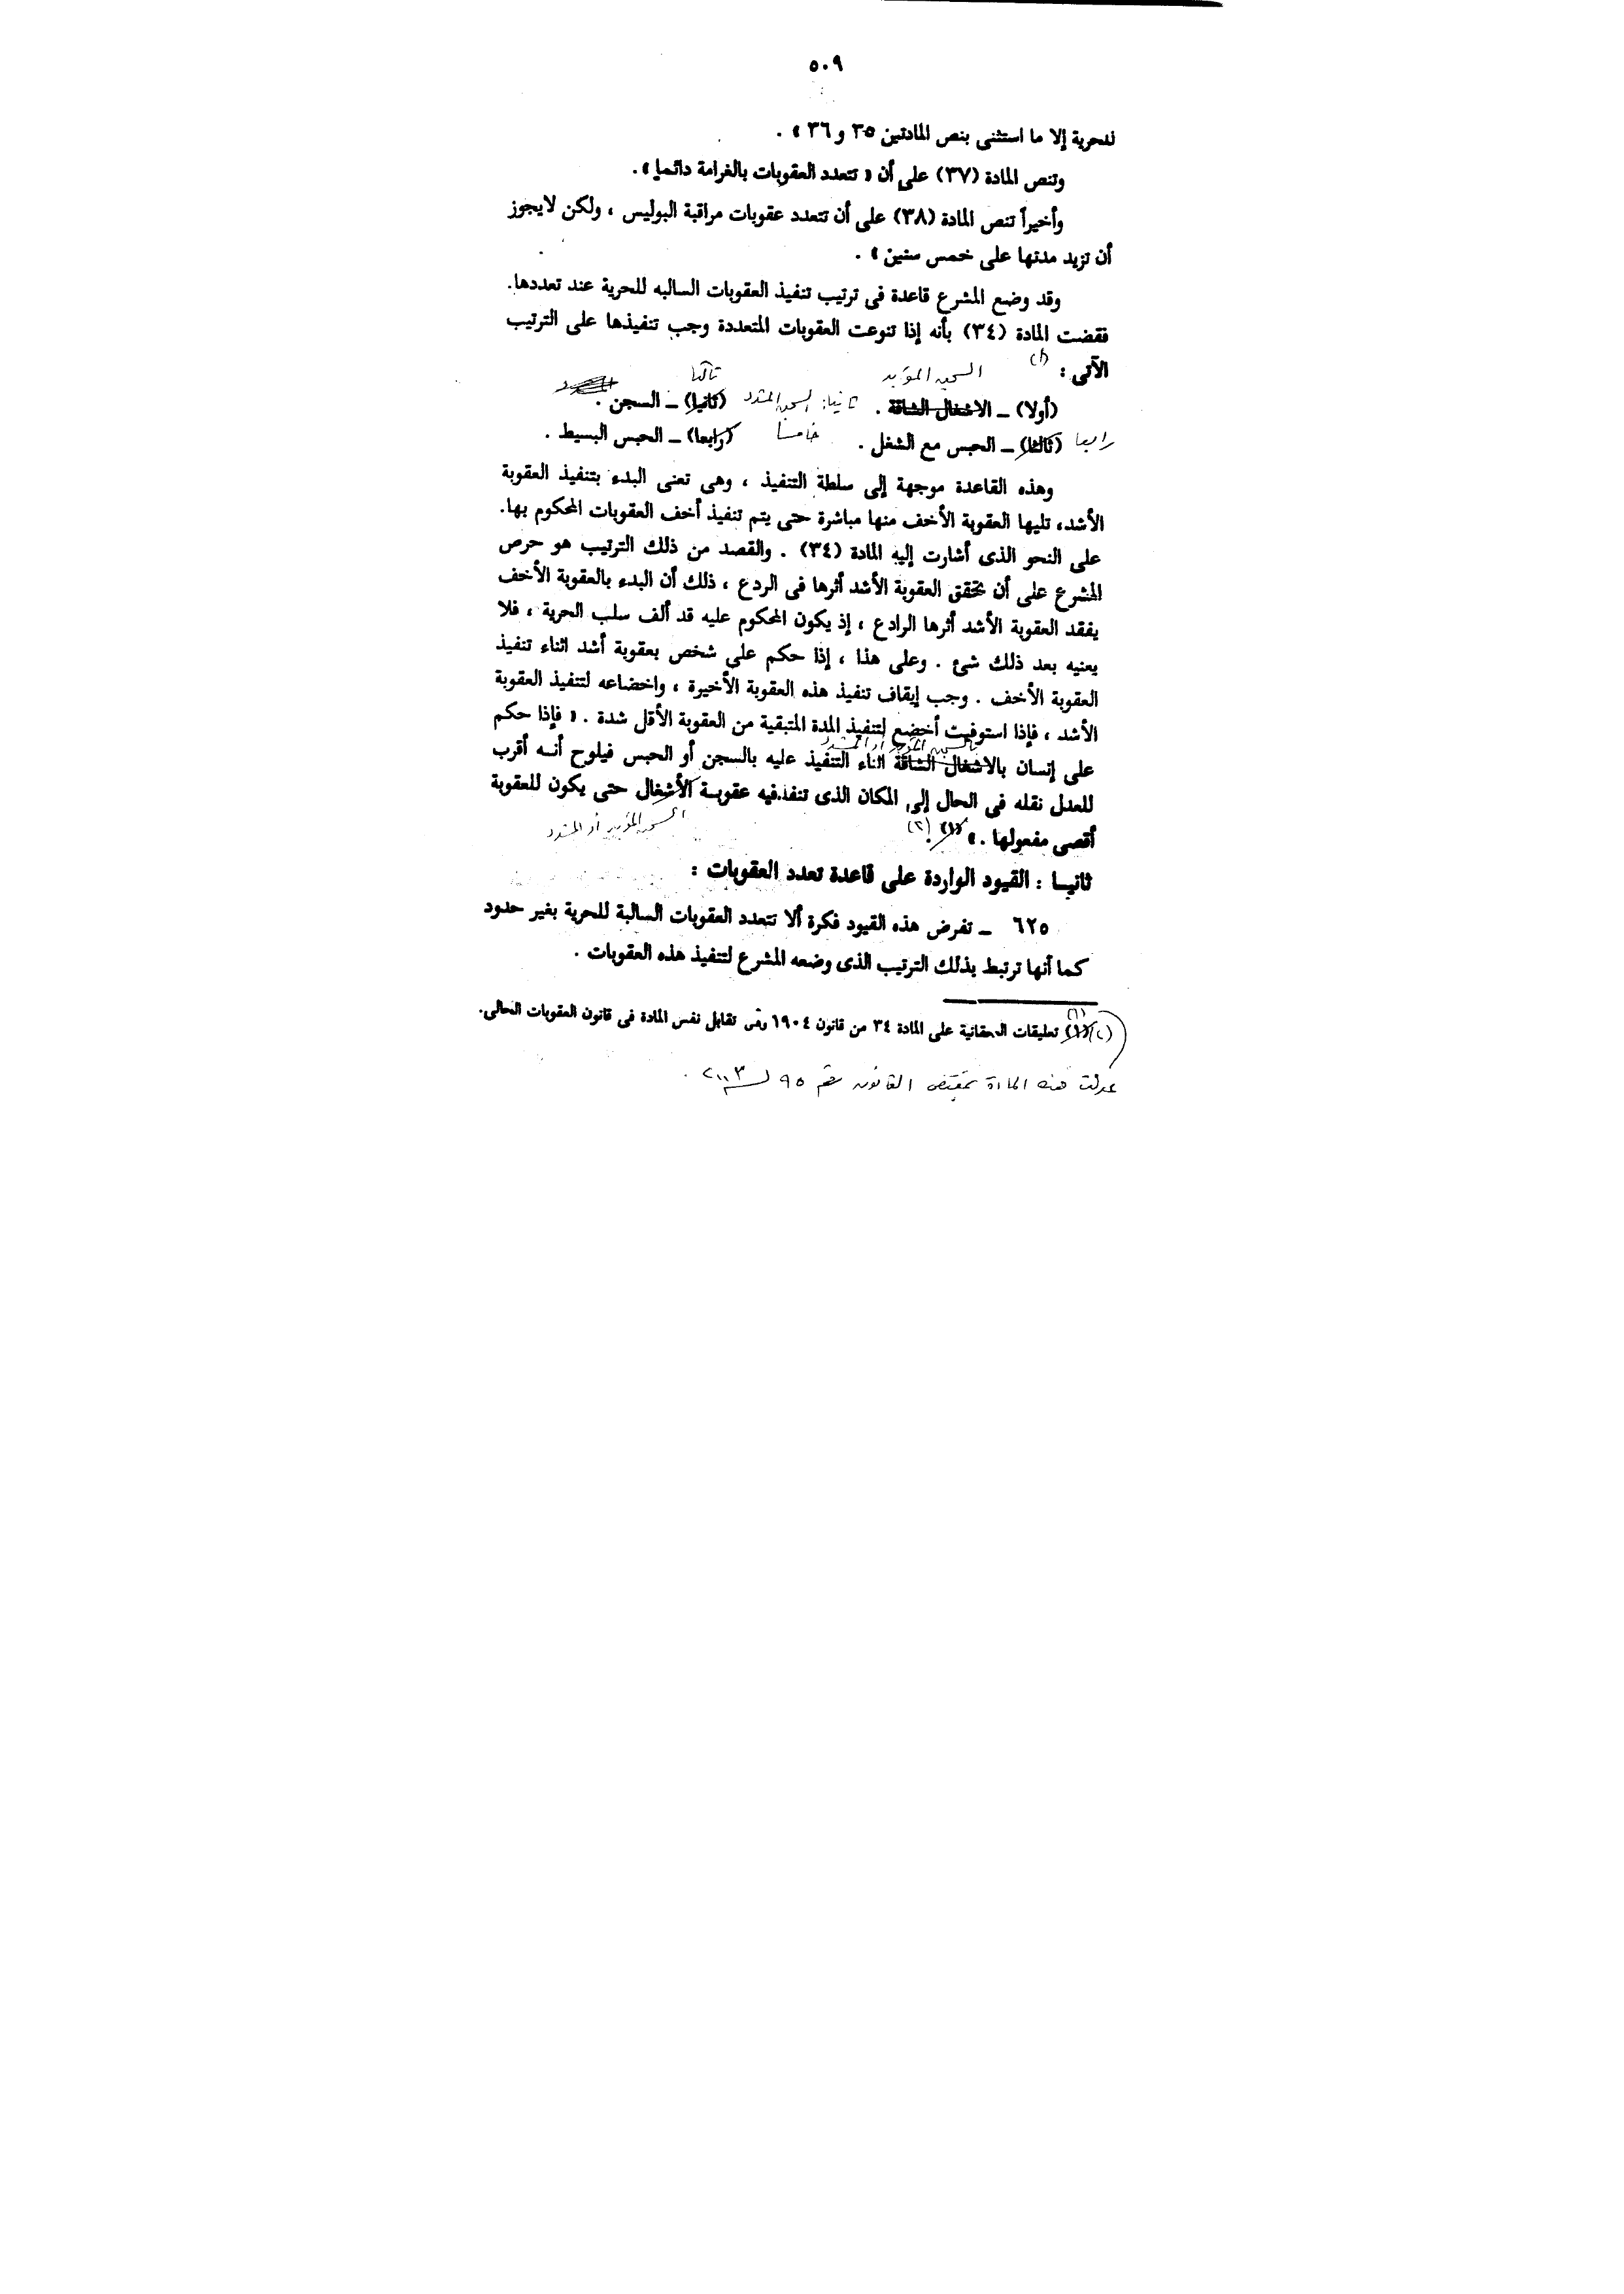 ٥٠٩
للحرية إلا ما استثنى بنص المادتين ٣٥ و ٣٦ » .
وتنص المادة (٣٧) على أن « تتعدد العقوبات بالغرامة دائما » .
وأخيراً تنص المادة (٣٨) على أن تتعدد عقوبات مراقبة البوليس ، ولكن لايجوز
أن تزيد مدتها على خمس سنين » .
وقد وضع المشرع قاعدة فى ترتيب تنفيذ العقوبات السالبه للحرية عند تعددها.
فقضت المادة (٣٤) بأنه إذا تنوعت العقوبات المتعددة وجب تنفيذها على الترتيب
الآتى : (١)
السجن المؤبد ثالثا
(أولا) ــ الاشغال الشاقة . ثانيا: السجن المشدد (ثانيا) ــ السجن .
رابعا (ثالثا) ــ الحبس مع الشغل . خامسا (رابعا) ــ الحبس البسيط .
وهذه القاعدة موجهة إلى سلطة التنفيذ ، وهى تعنى البدء بتنفيذ العقوبة
الأشد، تليها العقوبة الأخف منها مباشرة حتى يتم تنفيذ أخف العقوبات المحكوم بها.
على النحو الذى أشارت إليه المادة (٣٤) . والقصد من ذلك الترتيب هو حرص
المشرع على أن تحقق العقوبة الأشد أثرها فى الردع ، ذلك أن البدء بالعقوبة الأخف
يفقد العقوبة الأشد أثرها الرادع ، إذ يكون المحكوم عليه قد ألف سلب الحرية ، فلا
يعنيه بعد ذلك شئ . وعلى هذا ، إذا حكم على شخص بعقوبة أشد اثناء تنفيذ
العقوبة الأخف . وجب إيقاف تنفيذ هذه العقوبة الأخيرة ، واخضاعه لتنفيذ العقوبة
الأشد ، فإذا استوفيت أخضع لتنفيذ المدة المتبقية من العقوبة الأقل شدة . « فإذا حكم
بالسجن المؤبد أو المشدد
على إنسان بالاشغال الشاقة اثناء التنفيذ عليه بالسجن أو الحبس فيلوح أنه أقرب
للعدل نقله فى الحال إلى المكان الذى تنفذ فيه عقوبة الأشغال حتى يكون للعقوبة
السجن المؤبد أو المشدد
أقصى مفعولها . » (١) . (٢)
ثانيا : القيود الواردة على قاعدة تعدد العقوبات :
٦٢٥ ــ تفرض هذه القيود فكرة ألا تتعدد العقوبات السالبة للحرية بغير حدود
كما أنها ترتبط بذلك الترتيب الذى وضعه المشرع لتنفيذ هذه العقوبات .
(١)
(٢) (١) تعليقات الحقانية على المادة ٣٤ من قانون ١٩٠٤ وهى تقابل نفس المادة فى قانون العقوبات الحالى.
عدلت هذه المادة بمقتضى القانون رقم ٩٥ لسنة ٢٠٠٣ .